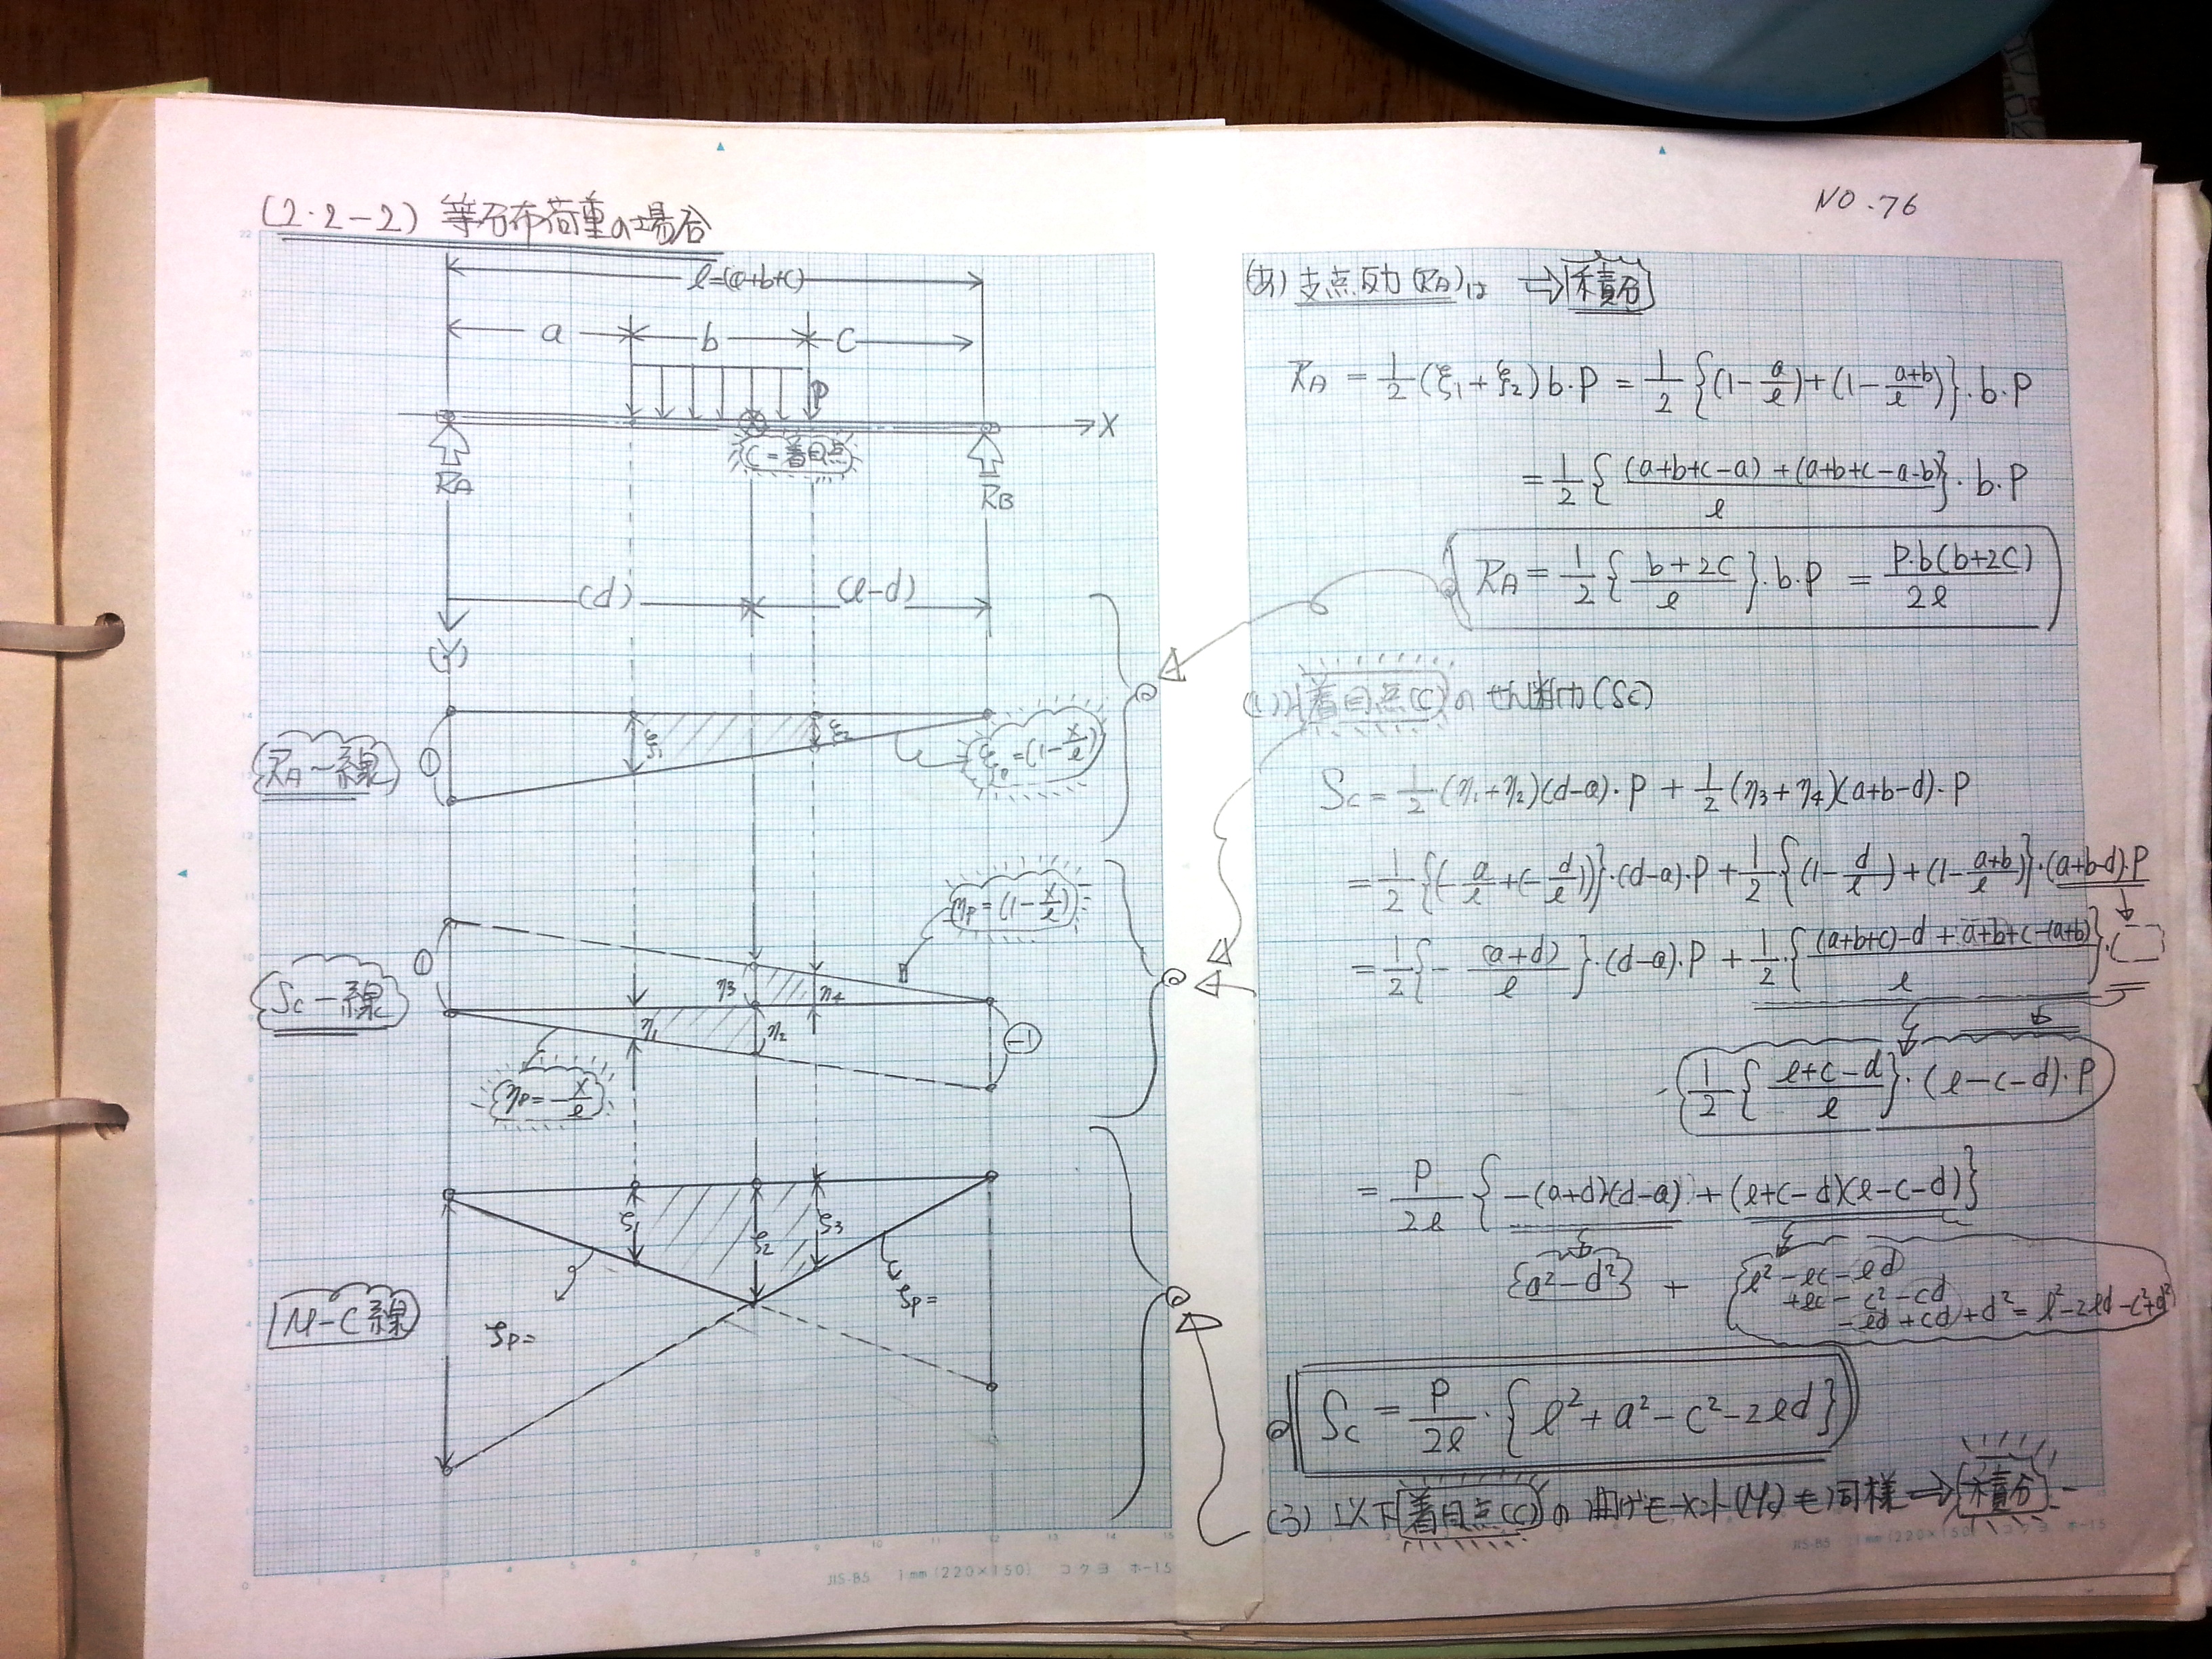 (2・2-2) 等分布荷重の場合
l=(a+b+c)
a
b
c
P
X
C=着目点
RA
RB
(d)
(l-d)
(Y)
RA-線
①
ξ1
ξ2
ξP=(1-x/l)
ηP=(1-x/l)
①
SC-線
η3
η4
η1
η2
-1
ηP=-x/l
M-C線
ζ1
ζ2
ζ3
ζP=
ζP=
JIS-B5 1mm(220×150) コクヨ ホ-15
NO.76
(あ) 支点反力(RA)は ⇒ 積分
RA = 1/2 (ξ1+ξ2) b・P = 1/2 {(1-a/l)+(1-(a+b)/l)}・b・P
= 1/2 {((a+b+c-a)+(a+b+c-a-b))/l}・b・P
RA = 1/2 {(b+2c)/l}・b・P = P・b(b+2c)/2l
着目点(C)のせん断力(SC)
SC = 1/2・(η1+η2)(d-a)・P + 1/2 (η3+η4)(a+b-d)・P
= 1/2 {(-a/l+(-d/l))}・(d-a)・P + 1/2 {(1-d/l)+(1-(a+b)/l)}・(a+b-d)・P
= 1/2 {-(a+d)/l}・(d-a)・P + 1/2・{((a+b+c)-d+a+b+c-(a+b))/l}・( )
1/2 {(l+c-d)/l}・(l-c-d)・P
= P/2l {-(a+d)(d-a)+(l+c-d)(l-c-d)}
{a²-d²} + {l²-lc-ld
+lc-c²-cd
-ld+cd+d² = l²-2ld-c²+d²
SC = P/2l・{l²+a²-c²-2ld}
(3) 以下着目点(C)の曲げモーメント(MC)も同様 ⇒ 積分
JIS-B5 1mm(220×150) コクヨ ホ-15